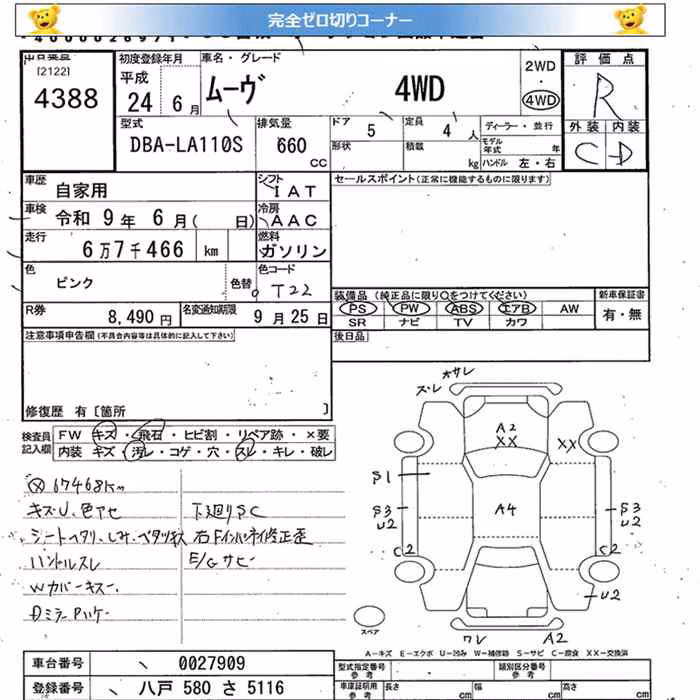 完全ゼロ切りコーナー
出品番号
[2122]
4388
初度登録年月
平成
24 6月
車名・グレード
ムーヴ 4WD
2WD
・
4WD
評価点
R
外装 内装
C D
型式
DBA-LA110S
排気量
660
CC
ドア 5
形状
定員 4 人
積載 kg
ディーラー・並行
モデル年式 年
ハンドル 左・右
車歴 自家用
シフト IAT
車検 令和 9年 6月( 日)
冷房 AAC
走行 6万7千466 km
燃料 ガソリン
色 ピンク
色替
色コード T22
R券 8,490円
名変通知期限 9月25日
セールスポイント(正常に機能するものに限ります)
装備品(純正品に限り○をつけてください)
PS PW ABS エアB AW
SR ナビ TV カワ
新車保証書
有・無
後日品
注意事項申告欄(不具合内容等は具体的に記入して下さい)
修復歴 有〔箇所 〕
検査員記入欄
FW キズ・飛石・ヒビ割・リペア跡・×要
内装 キズ・汚レ・コゲ・穴・スレ・キレ・破レ
67468km
キズU、色アセ
シートヘタリ、しみ、ベタツキ大
ハンドルスレ
Wカバーキズー.
Dミラー Pハゲー
下廻りSC
右Fインパネ修正歪
E/Gサビー
大サレ
ズレ
A2
XX
XX
S1
A4
S3
U2
S3
U2
C2
C2
U2
ワレ A2
スペア
A-キズ E-エクボ U-凹み W-補修跡 S-サビ C-腐食 XX-交換済
車台番号 0027909
登録番号 八戸 580 さ 5116
型式指定番号
参考
類別区分番号
参考
車庫証明用
参考
長さ cm
幅 cm
高さ cm